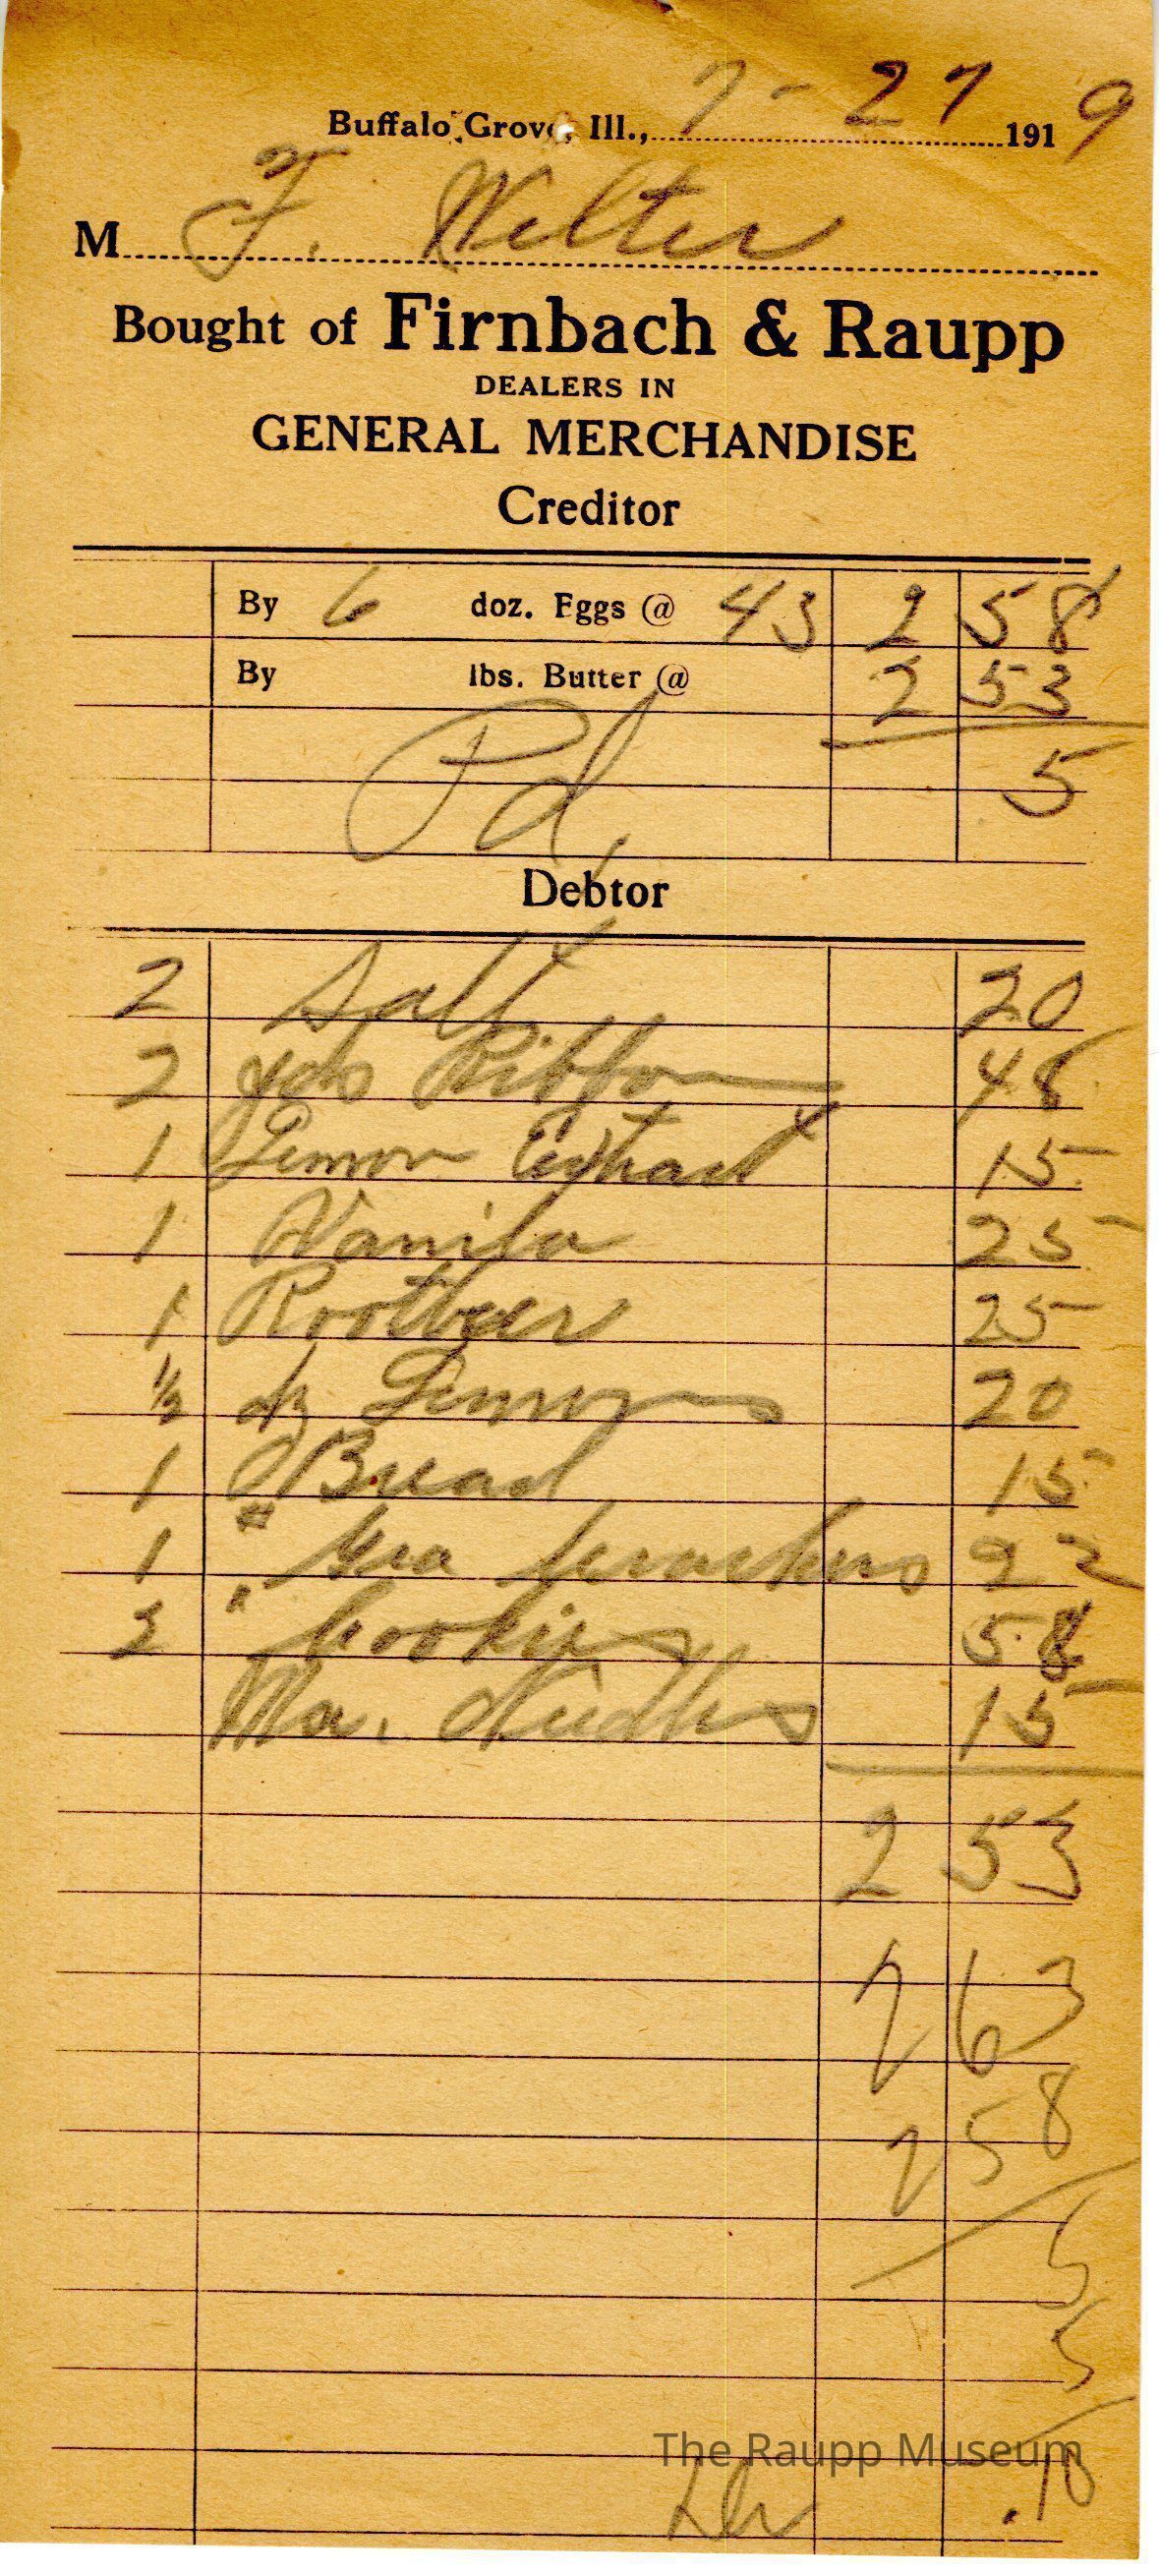 Buffalo Grove, Ill., 7-27 1919
M F. Welter
Bought of Firnbach & Raupp
DEALERS IN
GENERAL MERCHANDISE
Creditor
By 6 doz. Eggs @ 43 2 58
By lbs. Butter @ 2 53
Pd. 5
Debtor
2 Salt 20
2 yds Ribbon 48
1 Lemon Extract 15
1 Vanila 25
1 Rootbeer 25
1/2 dz Lemons 20
1 Bread 15
1 " Gra Crackers 22
2 " Cookies 58
Ma. Needles 15
2 53
2 63
2 58
5
5
The Raupp Museum
.10